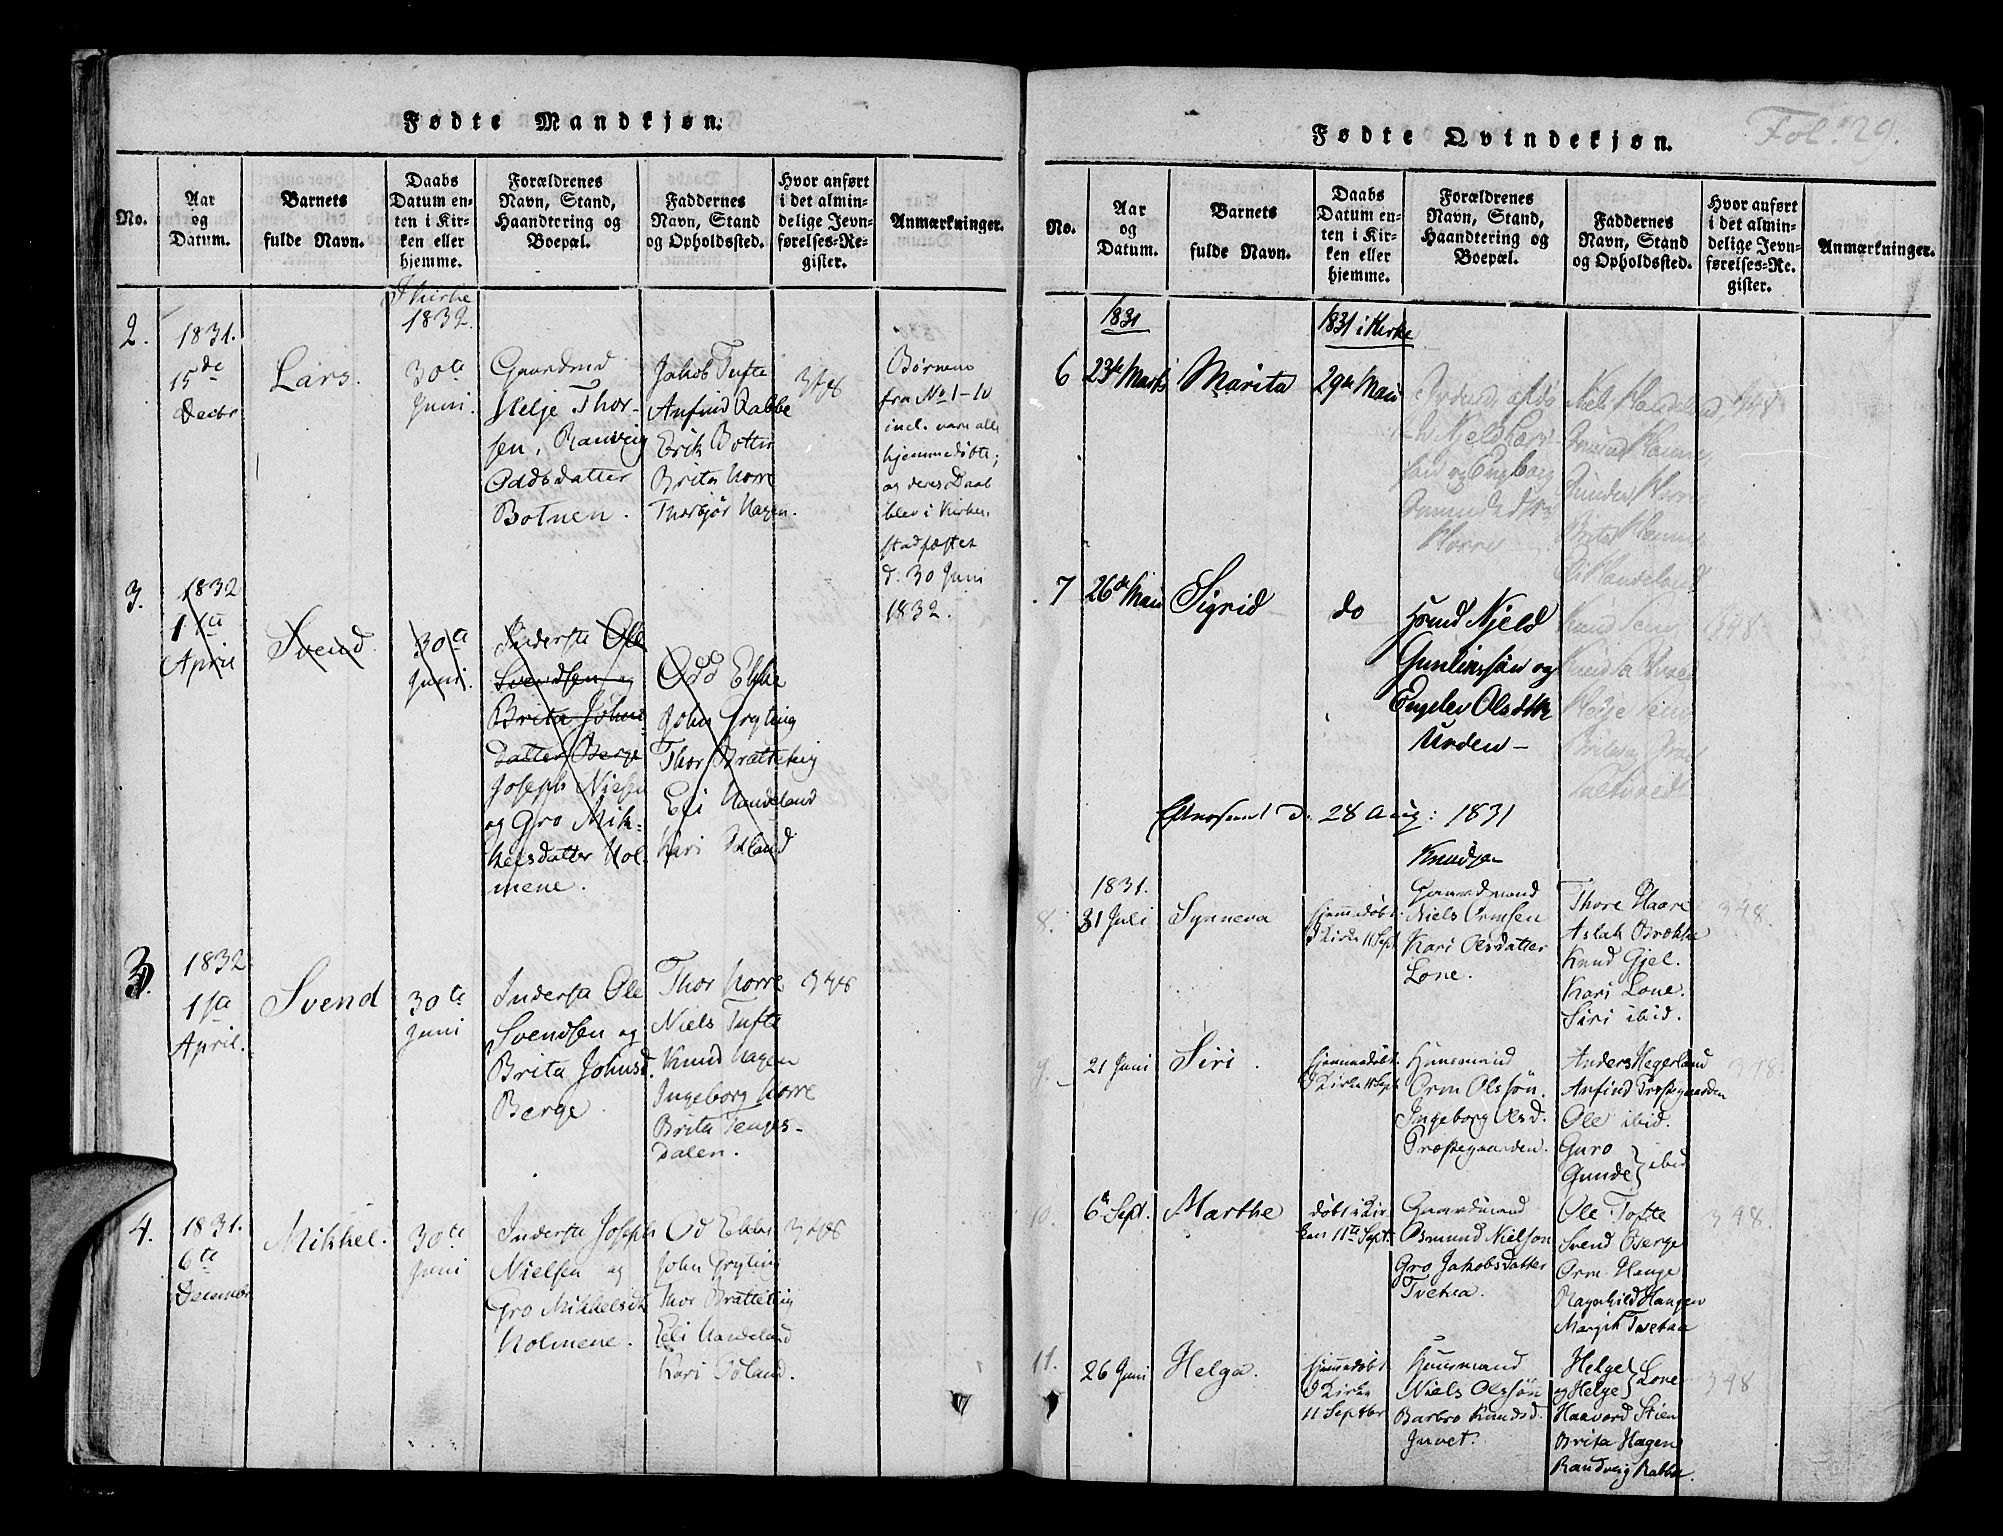 Fødte Mandkjøn.
No.
Aar
og
Datum.
Barnets
fulde Navn.
Daabs
Datum en-
ten i Kir-
ken eller
hjemme.
Forældrenes
Navn, Stand,
Haandtering og
Boepæl.
Faddernes
Navn, Stand
og Opholdssted.
Hvor anført
i det almin-
delige Jevn-
førelses-Re-
gister.
Anmærkninger.
2.
1831.
15de
Decbr
Lars.
I Kirke
1832.
30te
Juni
Gaardmd
Helje Thor-
sen, Ranveig
Oddsdatter
Botnen.
Jakob Tufte
Anfind Rabbe
Erik Botten
Brita Horre
Thorbjør Hagen.
348
Børnene
fra No 1-10
incl. vare alle
hjemmedøbte;
og deres Daab
blev i Kirken
stadfæstet
d. 30 Juni
1832.
3.
1832
1ste
April
Svend.
30te
Juni.
Inderste Ole
Svendsen og
Brita Johns
datter Berge
Joseph Nielsen
og Gro Mik-
kelsdatter Hol-
mene.
Odd Ekke
John Gryting
Thor Bratteteig
Eli Handeland
Kari Odland
3.
1832
1ste
April.
Svend
30te
Juni
Inderste Ole
Svendsen og
Brita Johnsd.
Berge.
Thor Horre
Niels Tufte
Knud Hagen
Ingeborg Horre
Brita Tenges-
dalen.
348
4.
1831.
6te
Decembr
Mikkel.
30te
Juni
Inderste Joseph
Nielsen og
Gro Mikkelsdtr
Holmene.
Od Ekke
John Gryting
Thor Bratteteig
Eeli Handeland
Kari Odland.
348
Fødte Qvindekjøn.
Fol. 29.
No.
Aar
og
Datum.
Barnets
fulde Navn.
Daabs
Datum en-
ten i Kir-
ken eller
hjemme.
Forældrenes
Navn, Stand,
Haandtering og
Boepæl.
Faddernes
Navn, Stand
og Opholdssted.
Hvor anført
i det almin-
delige Jevn-
førelses-Re-
gister.
Anmærkninger.
1831
1831 i Kirke
6
23de Marts
Marita
29de Mai
Kjeld
og Engborg
Horre
Niels Handeland
Horre
Brita
Eli Handeland
348
7
26de Mai
Sigrid
do
Huusmd Kjeld
Gunleiksøn og
Engelev Olsdttr
Urden
348
Efternævnt d. 28 Aug: 1831
Knudsen
8.
1831.
31 Juli
Synneva
hjemmedøbt
I Kirke 11 Sept
Gaardmand
Niels Ormsen
Kari Olsdatter
Lone.
Thore Haare
Aslak Brække
Knud Gjel.
Kari Lone.
Siri ibid.
348
9.
21 Juni
Siri.
hjemmedøbt
I Kirke 11 Sept
Huusmand
Orm Olssøn.
Ingeborg Olsd.
Præstegaarden.
Anders Hegerland
Anfind Præstegaarden
Ole ibid.
Guro
Gunde } ibid
348.
10.
6te Sept.
Marthe
døbt i Kir
ken 11te Sept.
Gaardmand
Osmund Nielson
Gro Jakobsdatter
Tvetea.
Ole Tofte
Svend Berge
Orm Hauge
Ragnhild Haugen
Margit Tvetaa
348.
11.
26 Juni
Helga.
hjemmedøbt
I Kirke
11 Septbr
Huusmand
Niels Olssøn
Barbro Knudsd.
Juvet.
Helge
og Helge } Lone
Haavord Stien
Brita Hagen
Randveig Rabbe.
348